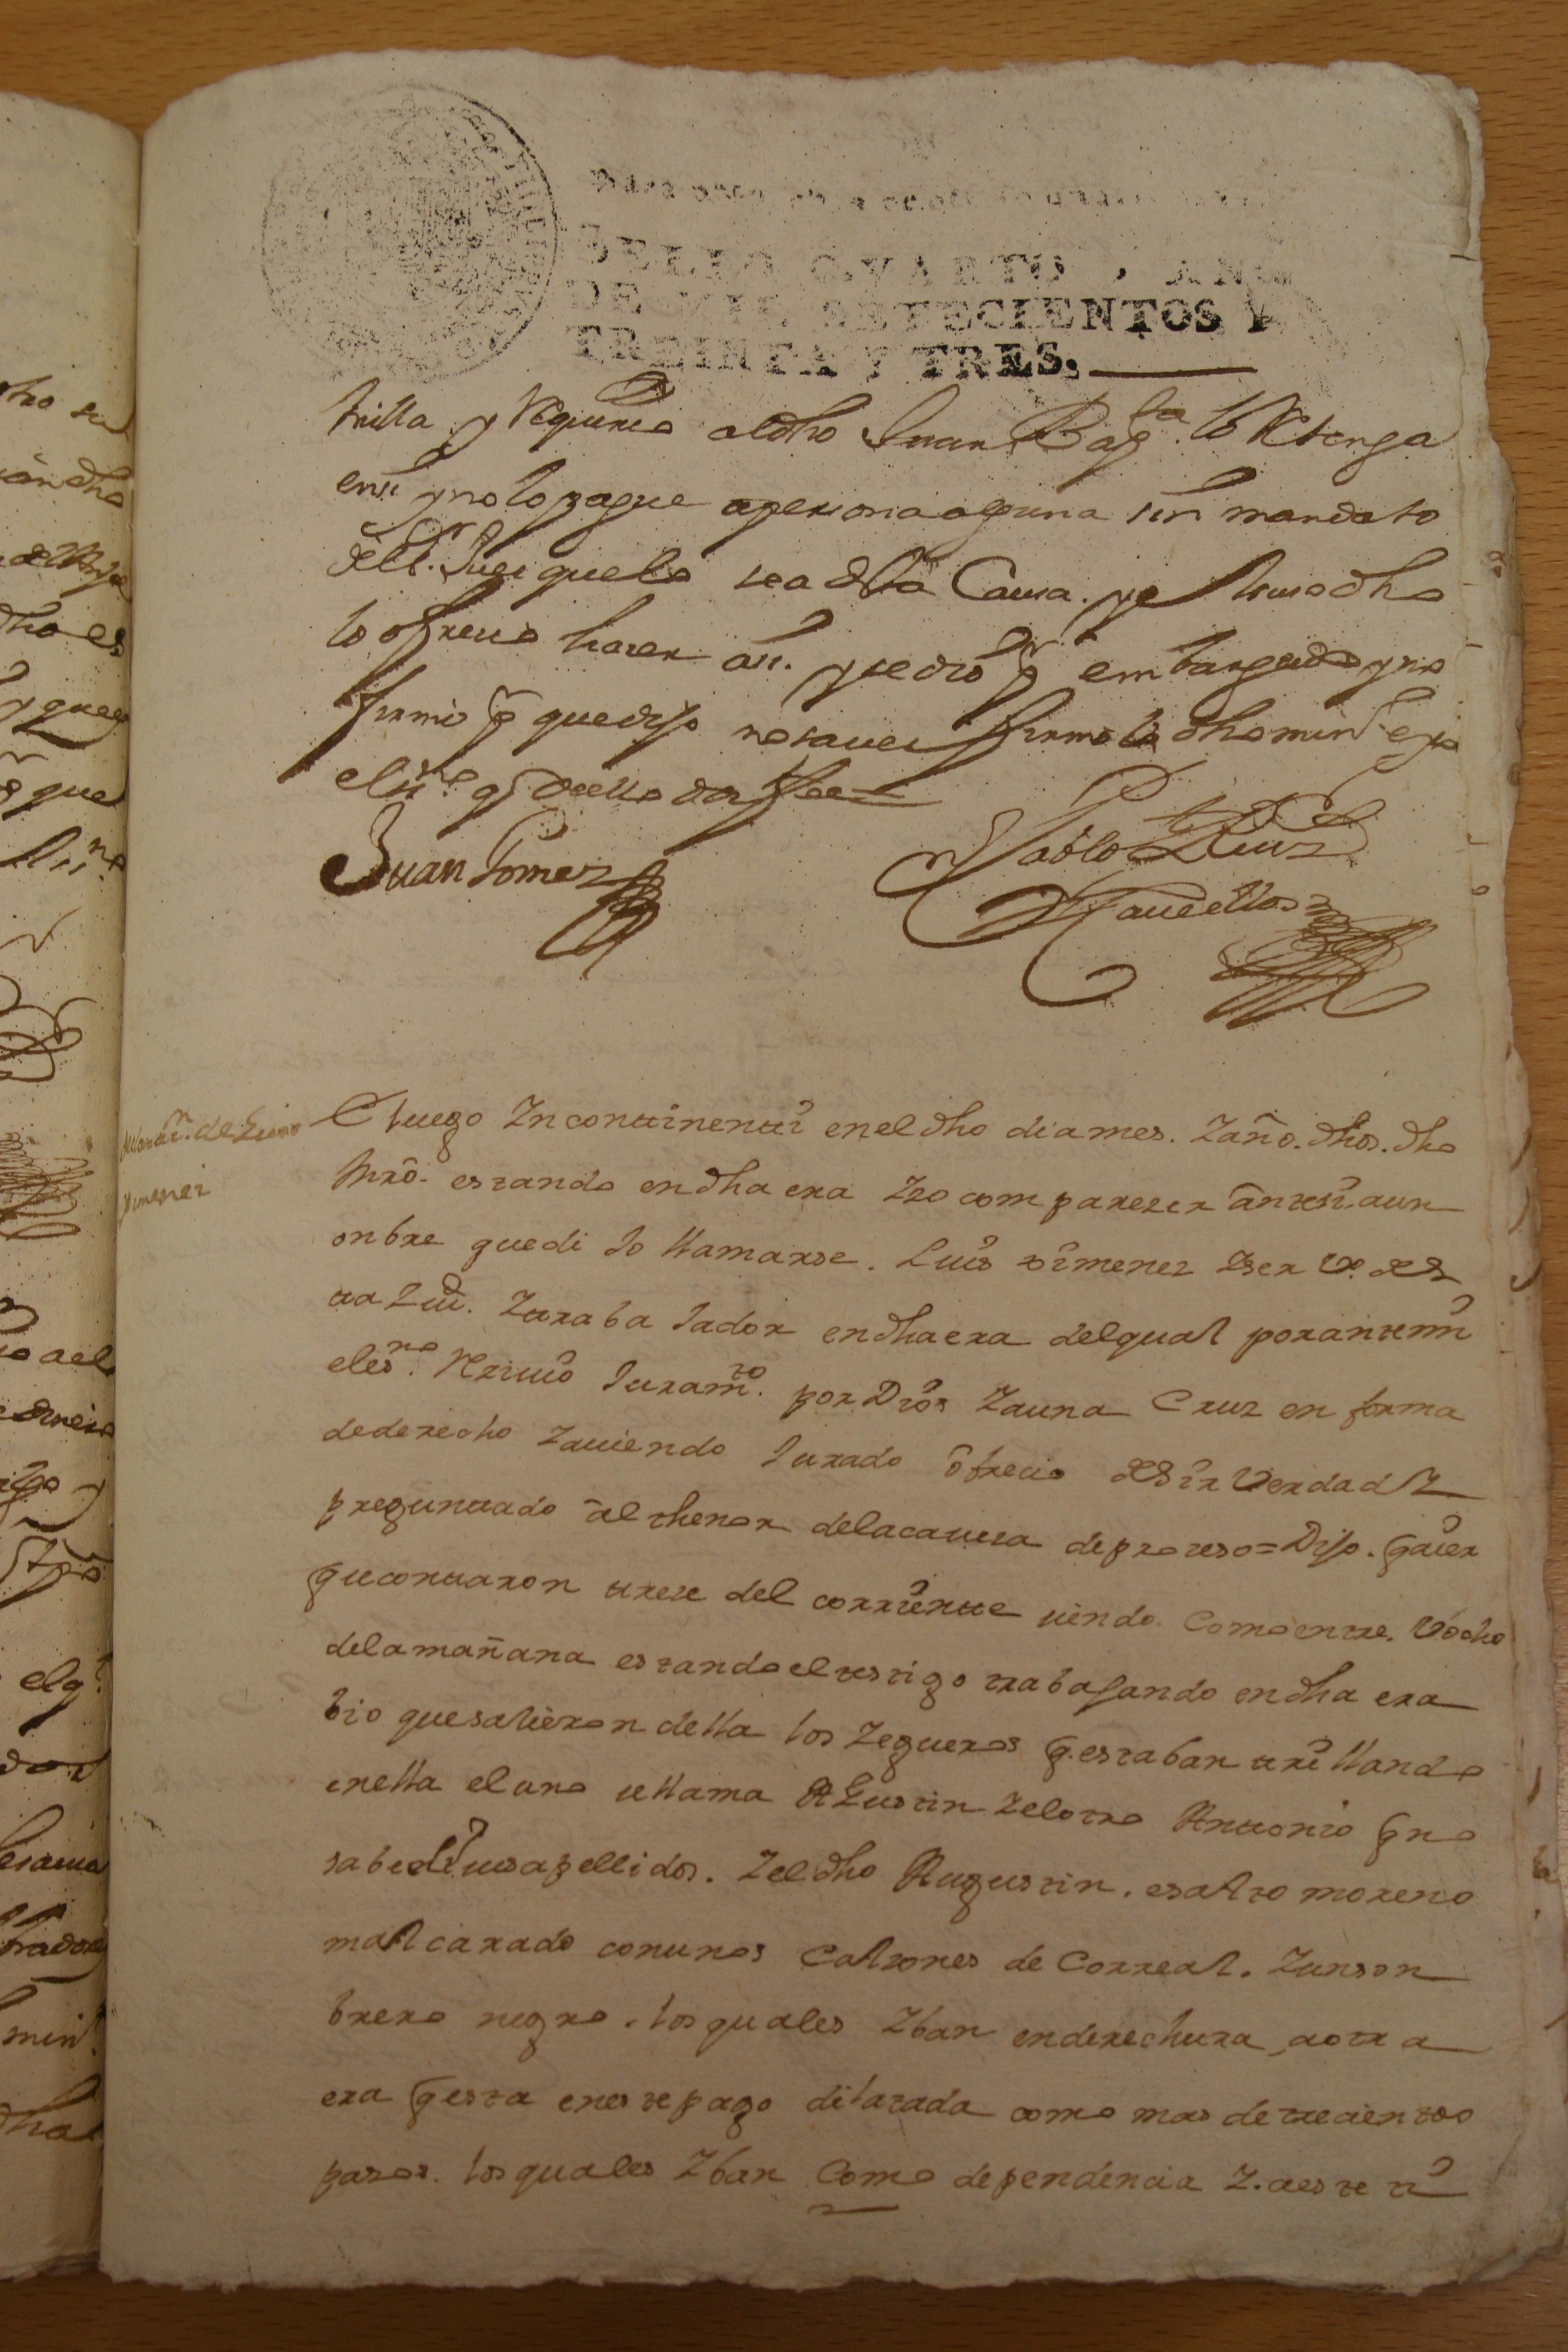 SELLO QVARTO, AÑO
DE MIL SETECIENTOS Y
TREINTA Y TRES.
trilla y Requirio al dho Juan Bapta lo Retenga
ensi y no lo pague a persona alguna sin mandato
del Sr. Juez que lo sea desta Causa. y el susodho
lo ofrecio hazer asi. y se dio pr embargado y no
firmo pr que dijo no saver firmolo dho minro e yo
el ssno q dello doy fee=
Juan Gomez
Pablo Ruiz
Clavellos
de Luis
ximenez
E luego Yn continenti en el dho dia mes. Y año. dhos. dho
Mro. estando en dha era Yzo comparezer antesi. a un
onbre que dijo llamarse. Luis ximenez Y ser vo. des
ta Ziud. Y traba Jador en dha era del qual por ante mi
el esno. Rezivio Juramto. por Dios Y a una Cruz en forma
de derecho Y aviendo Jurado ofrecio desir Verdad Y
preguntado al thenor de la cavesa de prozeso = Dijo. q aier
que contaron treze del corriente siendo. Como entre. 7 y ocho
de la mañana estando el testigo trabajando en dha era
bio que salieron della los Zegueros q. estaban trillando
en ella el uno se llama AGustin Y el otro Antonio q no
sabe sus apellidos. Y el dho Augustin. es alto moreno
mal carado con unos Calzones de Correal. Y un son
brero negro. los quales Yban en derechura, a otra
era q esta en este pago dilatada como mas de trecientos
pasos. los quales Yban Como de pendencia Y. a este ti